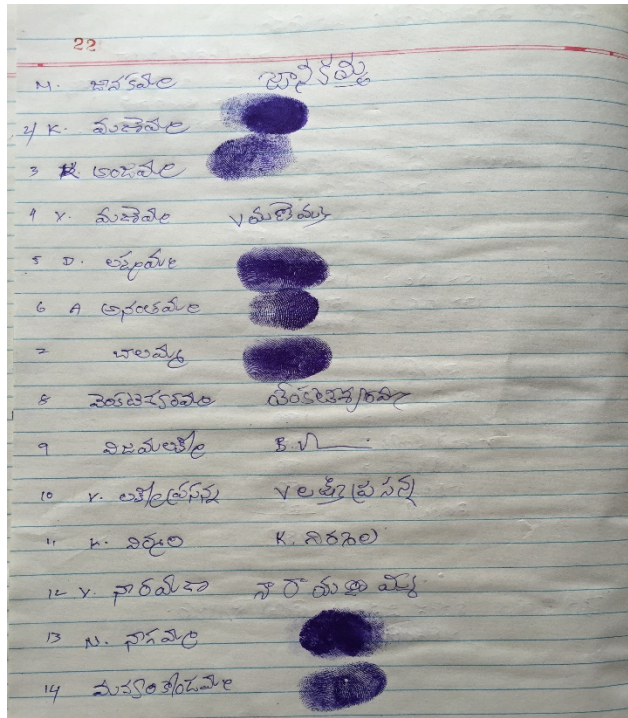 22
M. జానకమ్మ జానకమ్మ
2/ K. మణెమ్మ
3 K. అండమ్మ
4 V. మణెమ్మ V మణెమ్మ
5 D. లక్ష్మమ్మ
6 A అనంతమ్మ
7 బాలమ్మ
8 వెంకటేశ్వరమ్మ వెంకటేశ్వరమ్మ
9 విజయలక్ష్మి B.V
10 V. లక్ష్మీప్రసన్న V లక్ష్మీప్రసన్న
11 K. నిర్మల K. నిర్మల
12 V. నారాయణమ్మ
13 N. నాగమ్మ
14